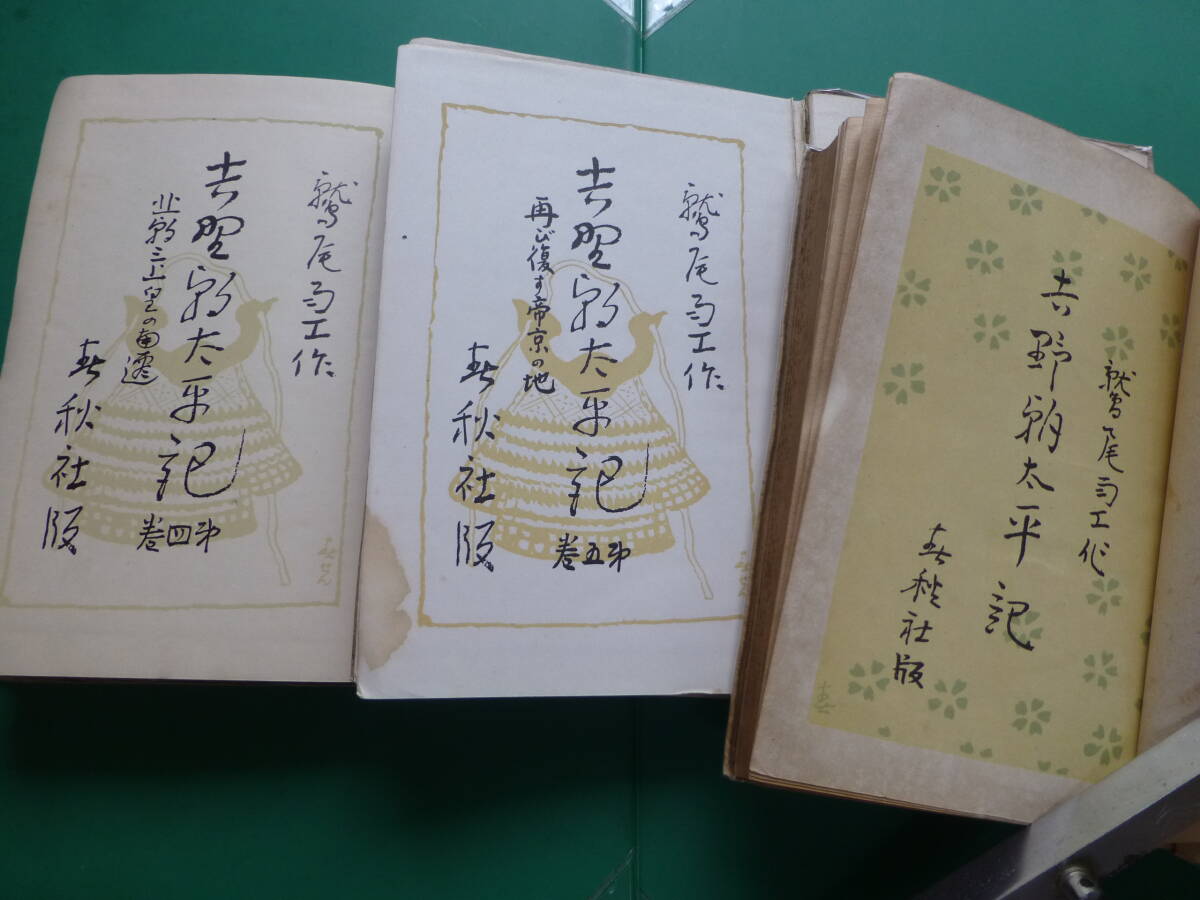 鷲尾雨工作
吉野朝太平記
北朝三上皇の南遷
第四巻
春秋社版
春せん
鷲尾雨工作
吉野朝太平記
再び復す帝京の地
第五巻
春秋社版
鷲尾雨工作
吉野朝太平記
春秋社版